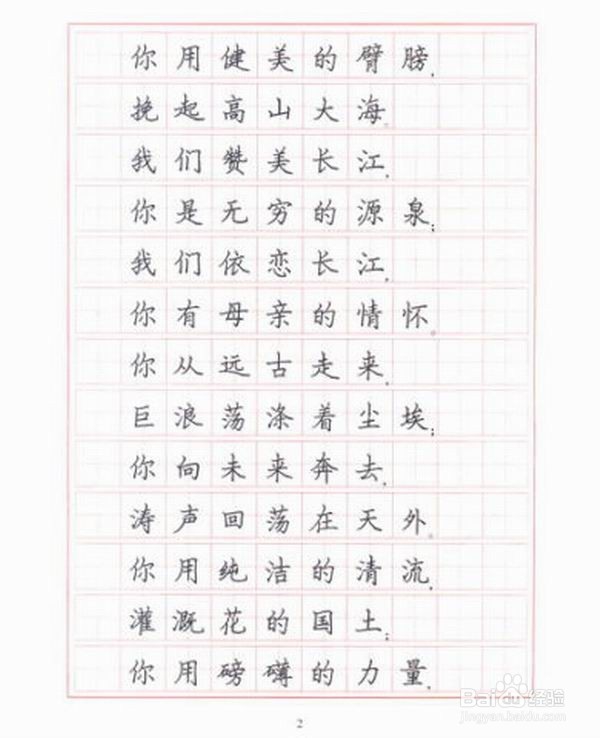 你用健美的臂膀，
挽起高山大海。
我们赞美长江，
你是无穷的源泉；
我们依恋长江，
你有母亲的情怀。
你从远古走来，
巨浪荡涤着尘埃；
你向未来奔去，
涛声回荡在天外。
你用纯洁的清流，
灌溉花的国土；
你用磅礴的力量，
2
Baidu 经验
jingyan.baidu.com